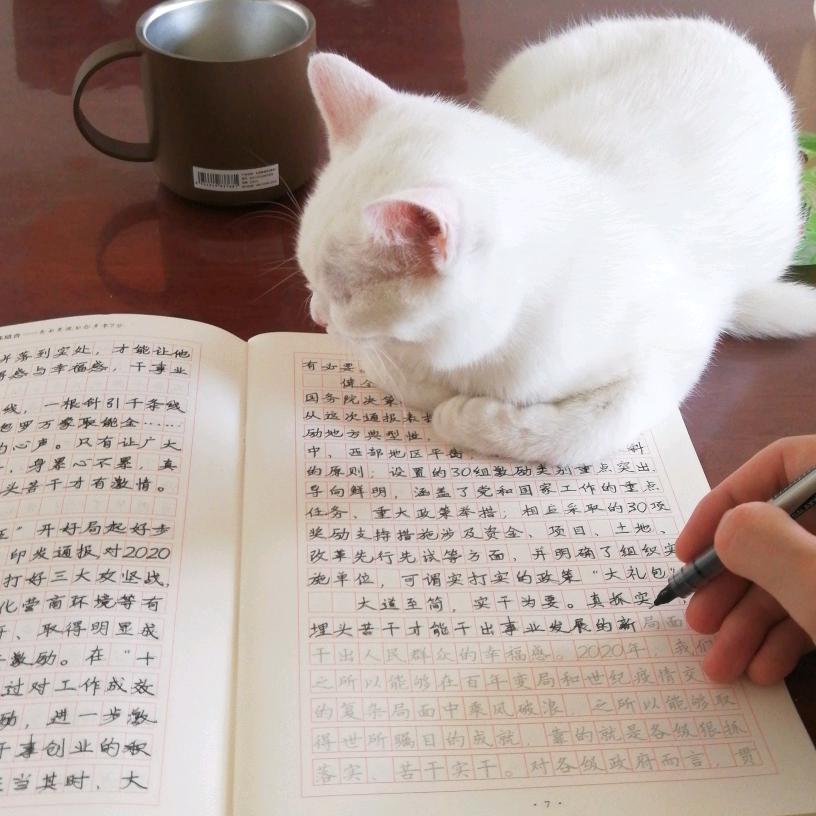 并落到实处,才能让他
感与幸福感,干事业
线,一根针引千条线
包罗万象取能全……
的心声。只有让广大
身累心不累,真
头苦干才有激情。
”开好局起好步
印发通报对2020
打好三大攻坚战,
化营商环境等有
、取得明显成
激励。在“十
过对工作成效
励,进一步激
干事创业的积
正当其时,大
有必要
健全
国务院决策
从这次通报表扬
励地方典型性
中,西部地区平衡 料
的原则;设置的30组激励类别重点突出,
导向鲜明,涵盖了党和国家工作的重点
任务、重大政策举措;相应采取的30项
奖励支持措施涉及资金、项目、土地、
改革先行先试等方面,并明确了组织实
施单位,可谓实打实的政策“大礼包”
大道至简,实干为要。真抓实
埋头苦干才能干出事业发展的新局面
干出人民群众的幸福感。2020年,我们
之所以能够在百年变局和世纪疫情交
的复杂局面中乘风破浪,之所以能够取
得世所瞩目的成就,靠的就是各级狠抓
落实、苦干实干。对各级政府而言,贯
·7·